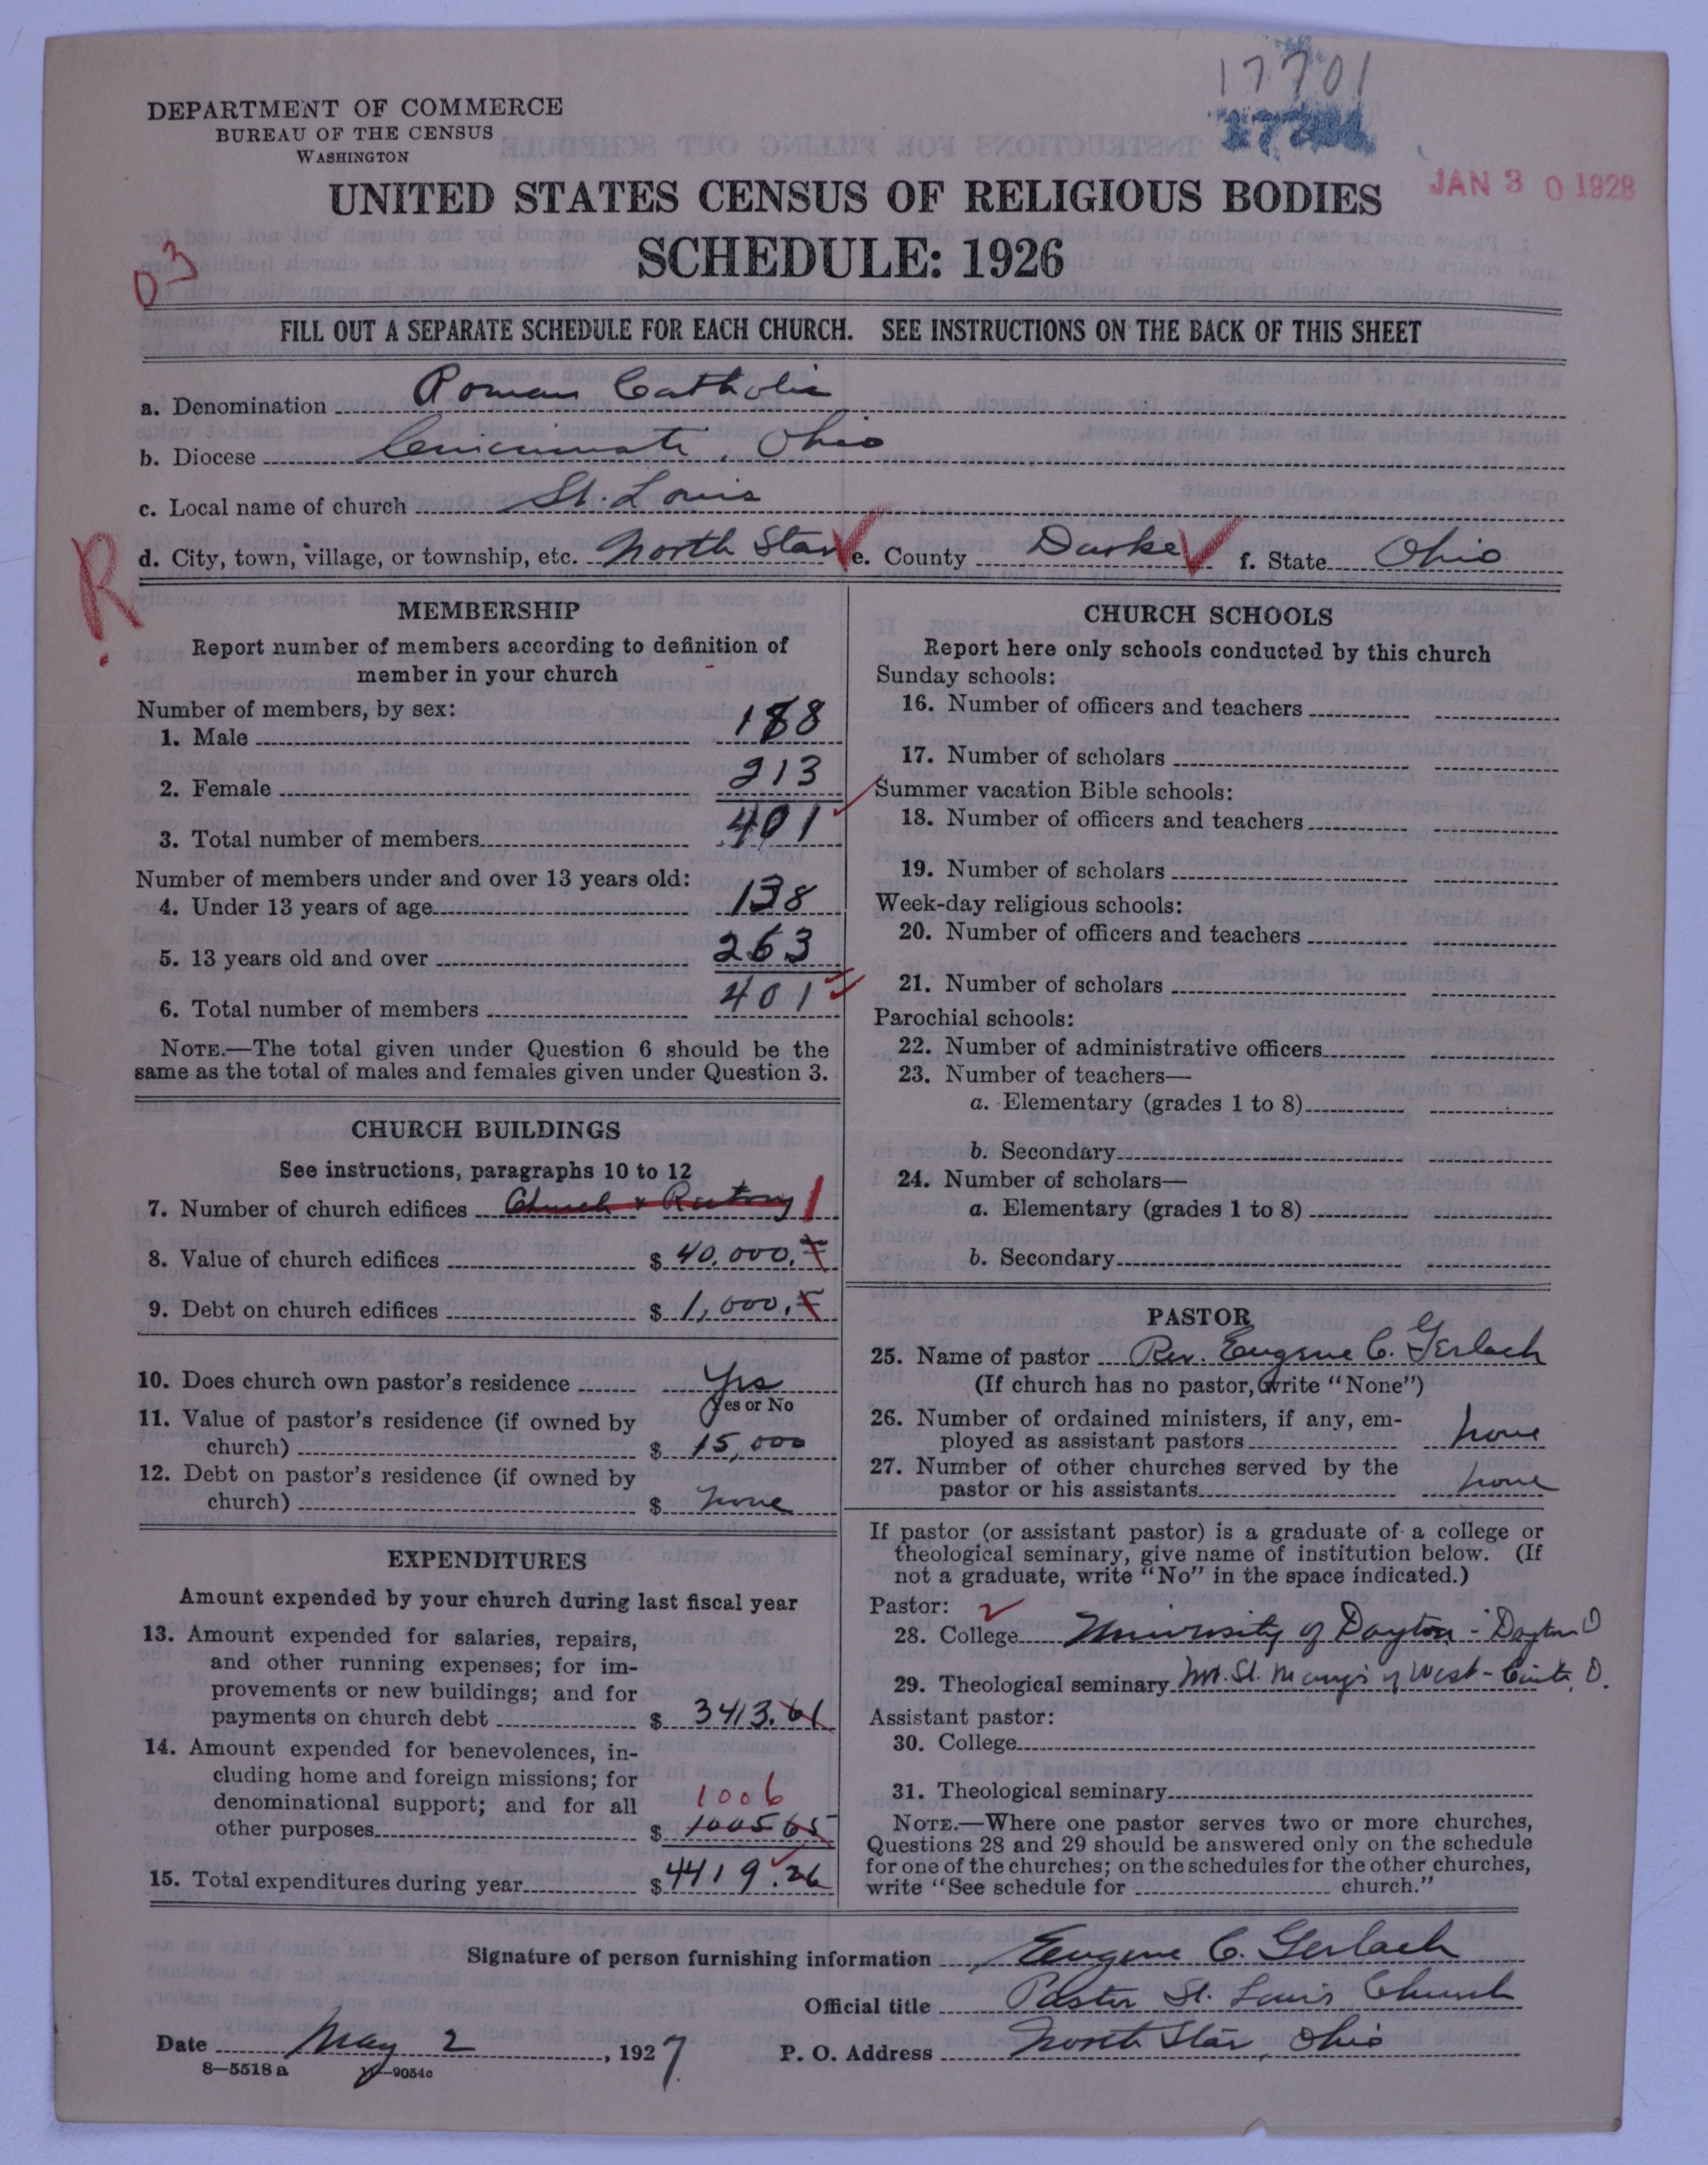 17701
DEPARTMENT OF COMMERCE
BUREAU OF THE CENSUS
WASHINGTON
JAN 30 1928
UNITED STATES CENSUS OF RELIGIOUS BODIES
SCHEDULE: 1926
03
FILL OUT A SEPARATE SCHEDULE FOR EACH CHURCH. SEE INSTRUCTIONS ON THE BACK OF THIS SHEET
a. Denomination Roman Catholic
b. Diocese Cincinnati, Ohio
c. Local name of church St. Louis
d. City, town, village, or township, etc. North Star e. County Darke f. State Ohio
R
MEMBERSHIP
Report number of members according to definition of
member in your church
Number of members, by sex:
1. Male 188
2. Female 213
3. Total number of members 401
Number of members under and over 13 years old:
4. Under 13 years of age 138
5. 13 years old and over 263
6. Total number of members 401
NOTE.—The total given under Question 6 should be the
same as the total of males and females given under Question 3.
CHURCH BUILDINGS
See instructions, paragraphs 10 to 12
7. Number of church edifices Church & Rectory 1
8. Value of church edifices $ 40,000.
9. Debt on church edifices $ 1,000.
10. Does church own pastor's residence Yes
Yes or No
11. Value of pastor's residence (if owned by
church) $ 15,000
12. Debt on pastor's residence (if owned by
church) $ none
EXPENDITURES
Amount expended by your church during last fiscal year
13. Amount expended for salaries, repairs,
and other running expenses; for im-
provements or new buildings; and for
payments on church debt $ 3413.61
14. Amount expended for benevolences, in-
cluding home and foreign missions; for
denominational support; and for all 1006
other purposes $ 1005 65
15. Total expenditures during year $ 4419.26
CHURCH SCHOOLS
Report here only schools conducted by this church
Sunday schools:
16. Number of officers and teachers
17. Number of scholars
Summer vacation Bible schools:
18. Number of officers and teachers
19. Number of scholars
Week-day religious schools:
20. Number of officers and teachers
21. Number of scholars
Parochial schools:
22. Number of administrative officers
23. Number of teachers—
a. Elementary (grades 1 to 8)
b. Secondary
24. Number of scholars—
a. Elementary (grades 1 to 8)
b. Secondary
PASTOR
25. Name of pastor Rev. Eugene C. Gerlach
(If church has no pastor, write "None")
26. Number of ordained ministers, if any, em-
ployed as assistant pastors none
27. Number of other churches served by the
pastor or his assistants none
If pastor (or assistant pastor) is a graduate of a college or
theological seminary, give name of institution below. (If
not a graduate, write "No" in the space indicated.)
Pastor:
28. College University of Dayton - Dayton O
29. Theological seminary Mt. St. Mary's of West - Cinti, O.
Assistant pastor:
30. College
31. Theological seminary
NOTE.—Where one pastor serves two or more churches,
Questions 28 and 29 should be answered only on the schedule
for one of the churches; on the schedules for the other churches,
write "See schedule for church."
Signature of person furnishing information Eugene C. Gerlach
Official title Pastor St. Louis Church
Date May 2, 1927 P. O. Address North Star, Ohio
8—5518 a